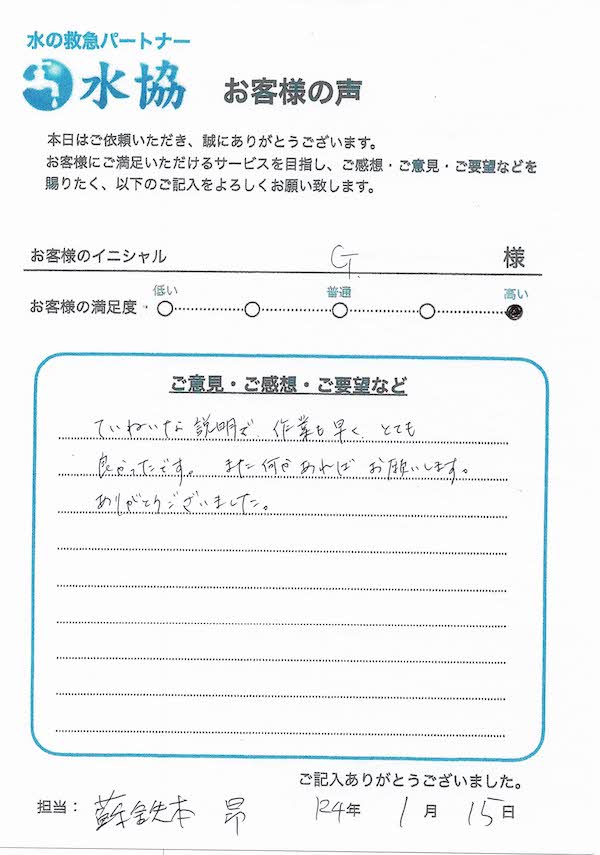 水の救急パートナー
水協 お客様の声
本日はご依頼いただき、誠にありがとうございます。
お客様にご満足いただけるサービスを目指し、ご感想・ご意見・ご要望などを
賜りたく、以下のご記入をよろしくお願い致します。
お客様のイニシャル G. 様
低い 普通 高い
お客様の満足度
ご意見・ご感想・ご要望など
ていねいな説明で、作業も早く、とても
良かったです。また何かあればお願いします。
ありがとうございました。
ご記入ありがとうございました。
担当: 蘇鉄本 昂 R4年 1月 15日